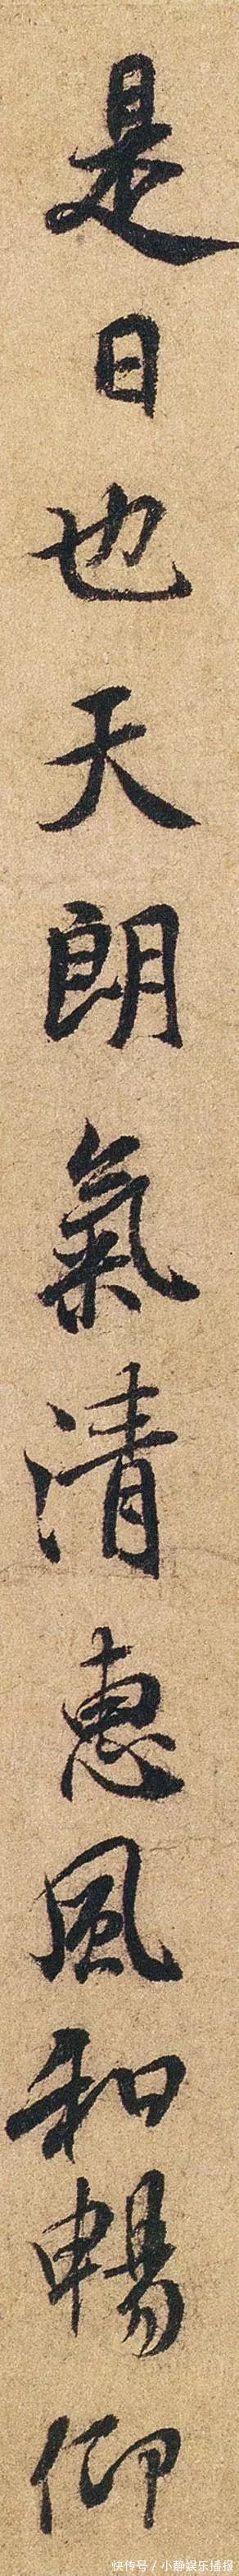 是日也天朗氣清惠風和暢仰
快传号／小静娱乐播报